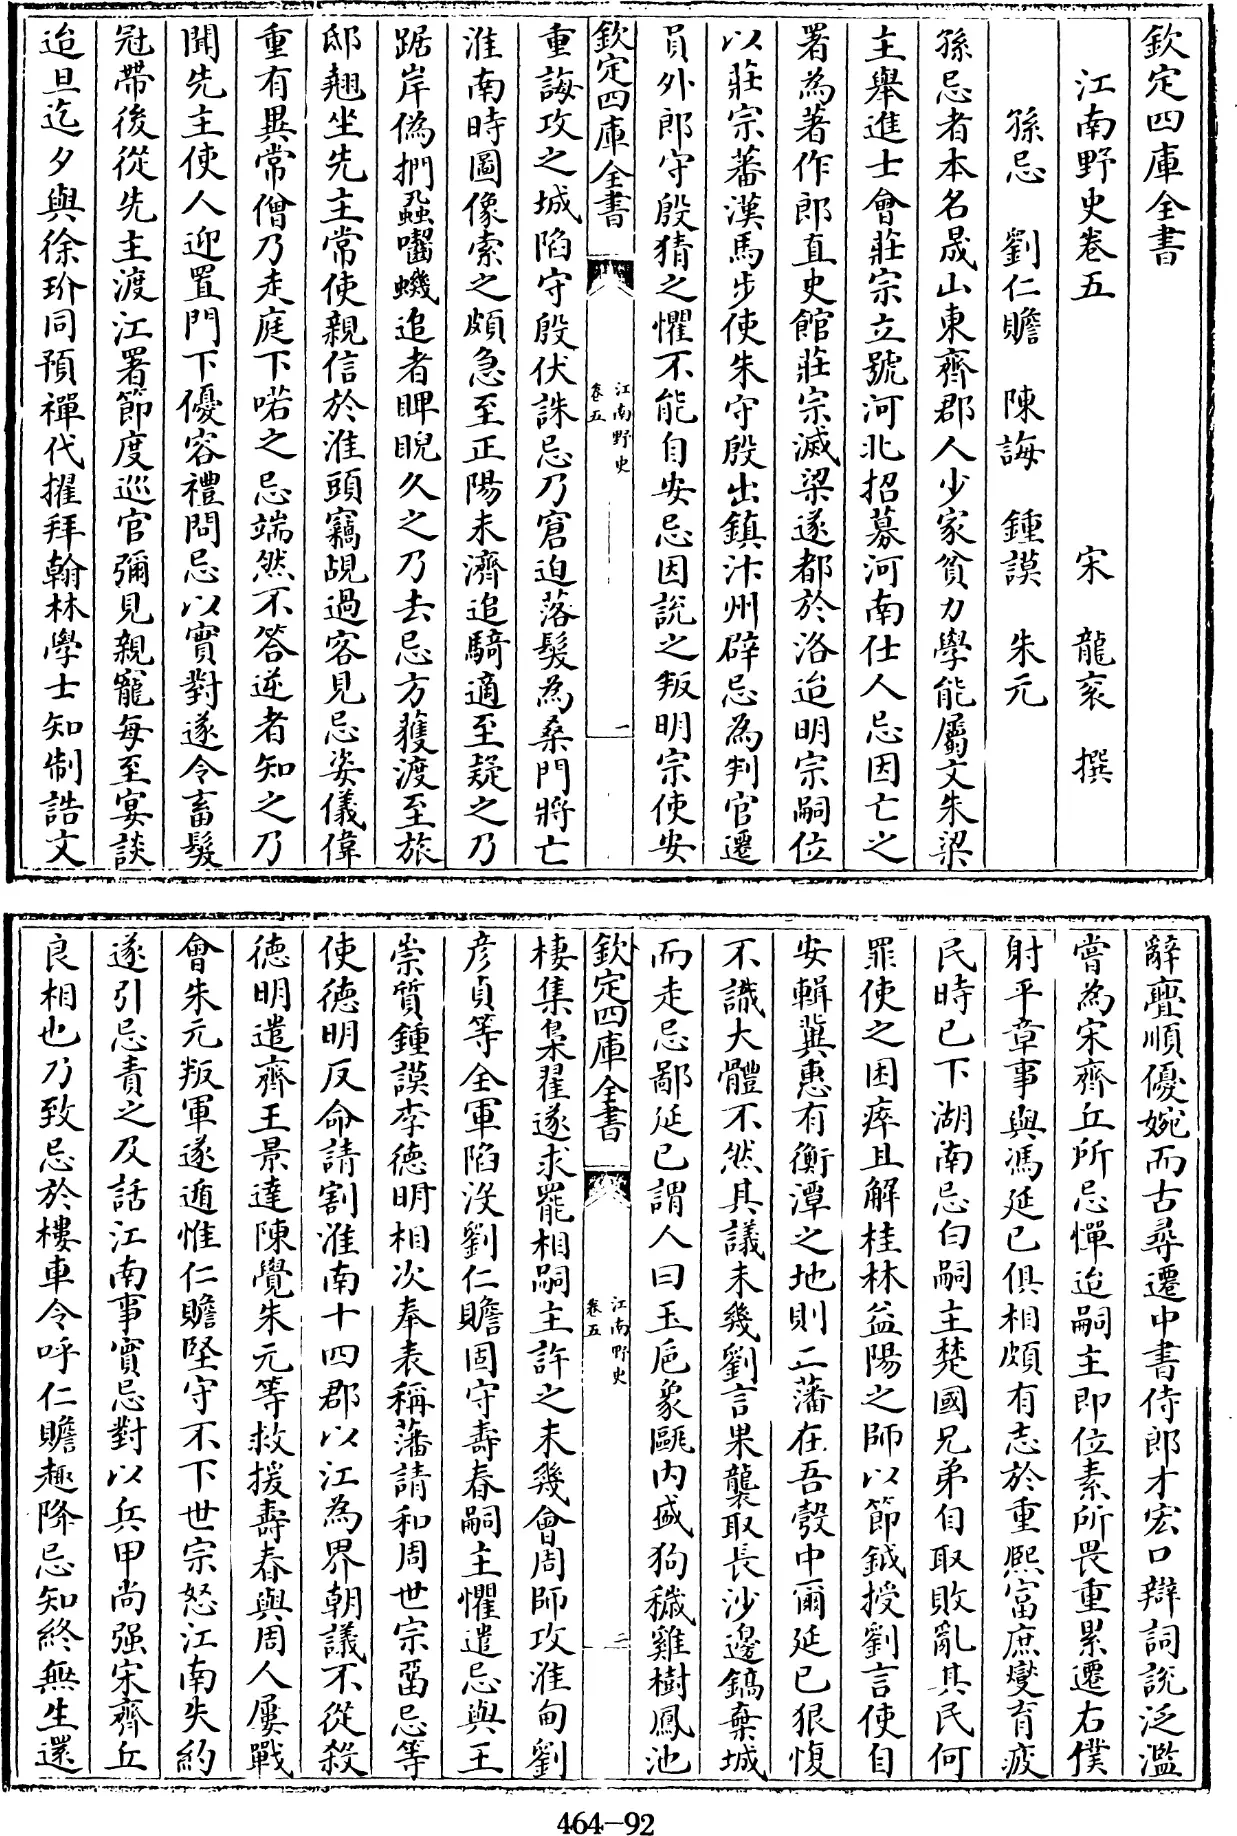 欽定四庫全書
江南野史卷五
宋 龍衮 撰
孫忌 劉仁贍 陳誨 鍾謨 朱元
孫忌者本名晟山東齊郡人少家貧力學能屬文朱梁
主舉進士會莊宗立號河北招募河南仕人忌因亡之
署為著作郎直史館莊宗滅梁遂都於洛迨明宗嗣位
以莊宗蕃漢馬步使朱守殷出鎮汴州辟忌為判官遷
員外郎守殷猜之懼不能自安忌因說之叛明宗使安
欽定四庫全書
江南野史
卷五
一
重誨攻之城陷守殷伏誅忌乃窘迫落髮為桑門將亡
淮南時圖像索之頗急至正陽未濟追騎適至疑之乃
踞岸偽捫蝨嚙蟣追者睥睨久之乃去忌方獲渡至旅
邸翹坐先主常使親信於淮頭竊覘過客見忌姿儀偉
重有異常僧乃走庭下喏之忌端然不答逆者知之乃
聞先主使人迎置門下優容禮問忌以實對遂令畜髮
冠帶後從先主渡江署節度巡官彌見親寵每至宴談
迨旦迄夕與徐玠同預禪代擢拜翰林學士知制誥文
辭亹順優婉而古尋遷中書侍郎才宏口辯詞說泛濫
嘗為宋齊丘所忌憚迨嗣主即位素所畏重累遷右僕
射平章事與馮延已俱相頗有志於重熙富庶燮育疲
民時已下湖南忌白嗣主楚國兄弟自取敗亂其民何
罪使之困瘁且解桂林益陽之師以節鉞授劉言使自
安輯冀惠有衡潭之地則二藩在吾彀中爾延已狠愎
不識大體不然其議未幾劉言果襲取長沙邊鎬棄城
而走忌鄙延已謂人曰玉巵象甌内盛狗穢雞樹鳳池
欽定四庫全書
江南野史
卷五
二
棲集梟翟遂求罷相嗣主許之未幾會周師攻淮甸劉
彦貞等全軍陷沒劉仁贍固守壽春嗣主懼遣忌與王
崇質鍾謨李德明相次奉表稱藩請和周世宗畱忌等
使德明反命請割淮南十四郡以江為界朝議不從殺
德明遣齊王景達陳覺朱元等救援壽春與周人屢戰
會朱元叛軍遂遁惟仁贍堅守不下世宗怒江南失約
遂引忌責之及話江南事實忌對以兵甲尚强宋齊丘
良相也乃致忌於樓車令呼仁贍趣降忌知終無生還
464-92